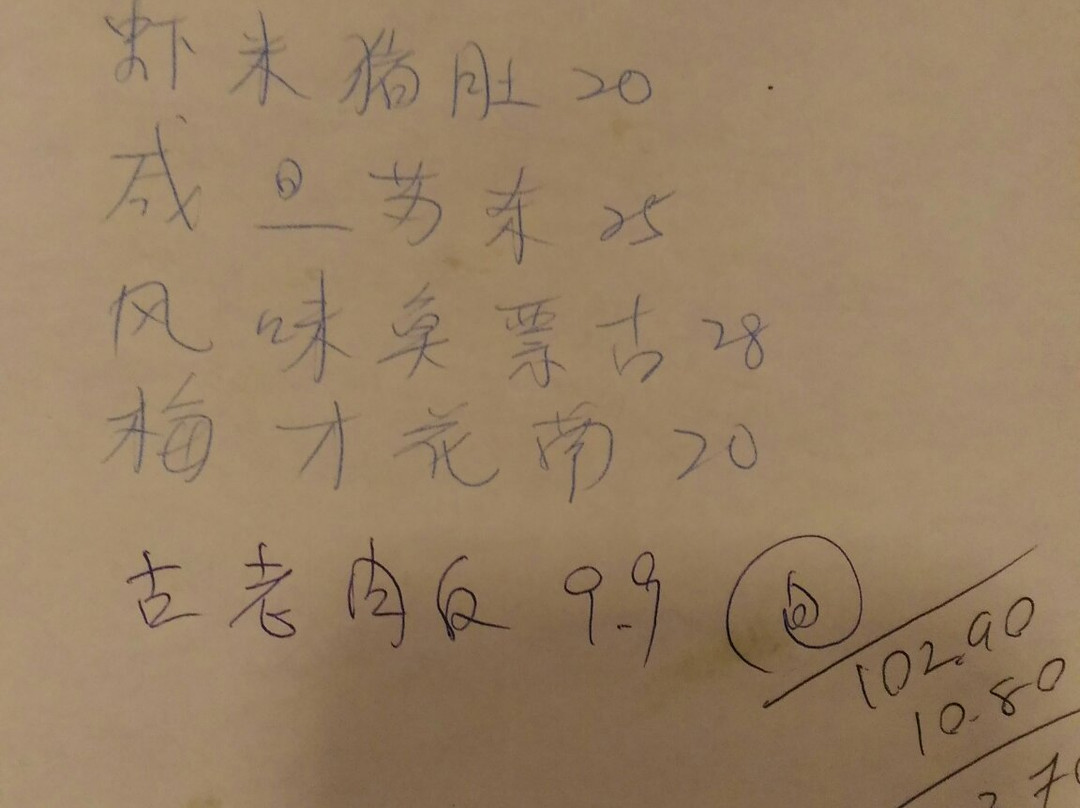 虾米猪肚 20
咸旦苏东 25
风味鱼票古 28
梅才花南 20
古老肉反 9.9
102.90
10.80